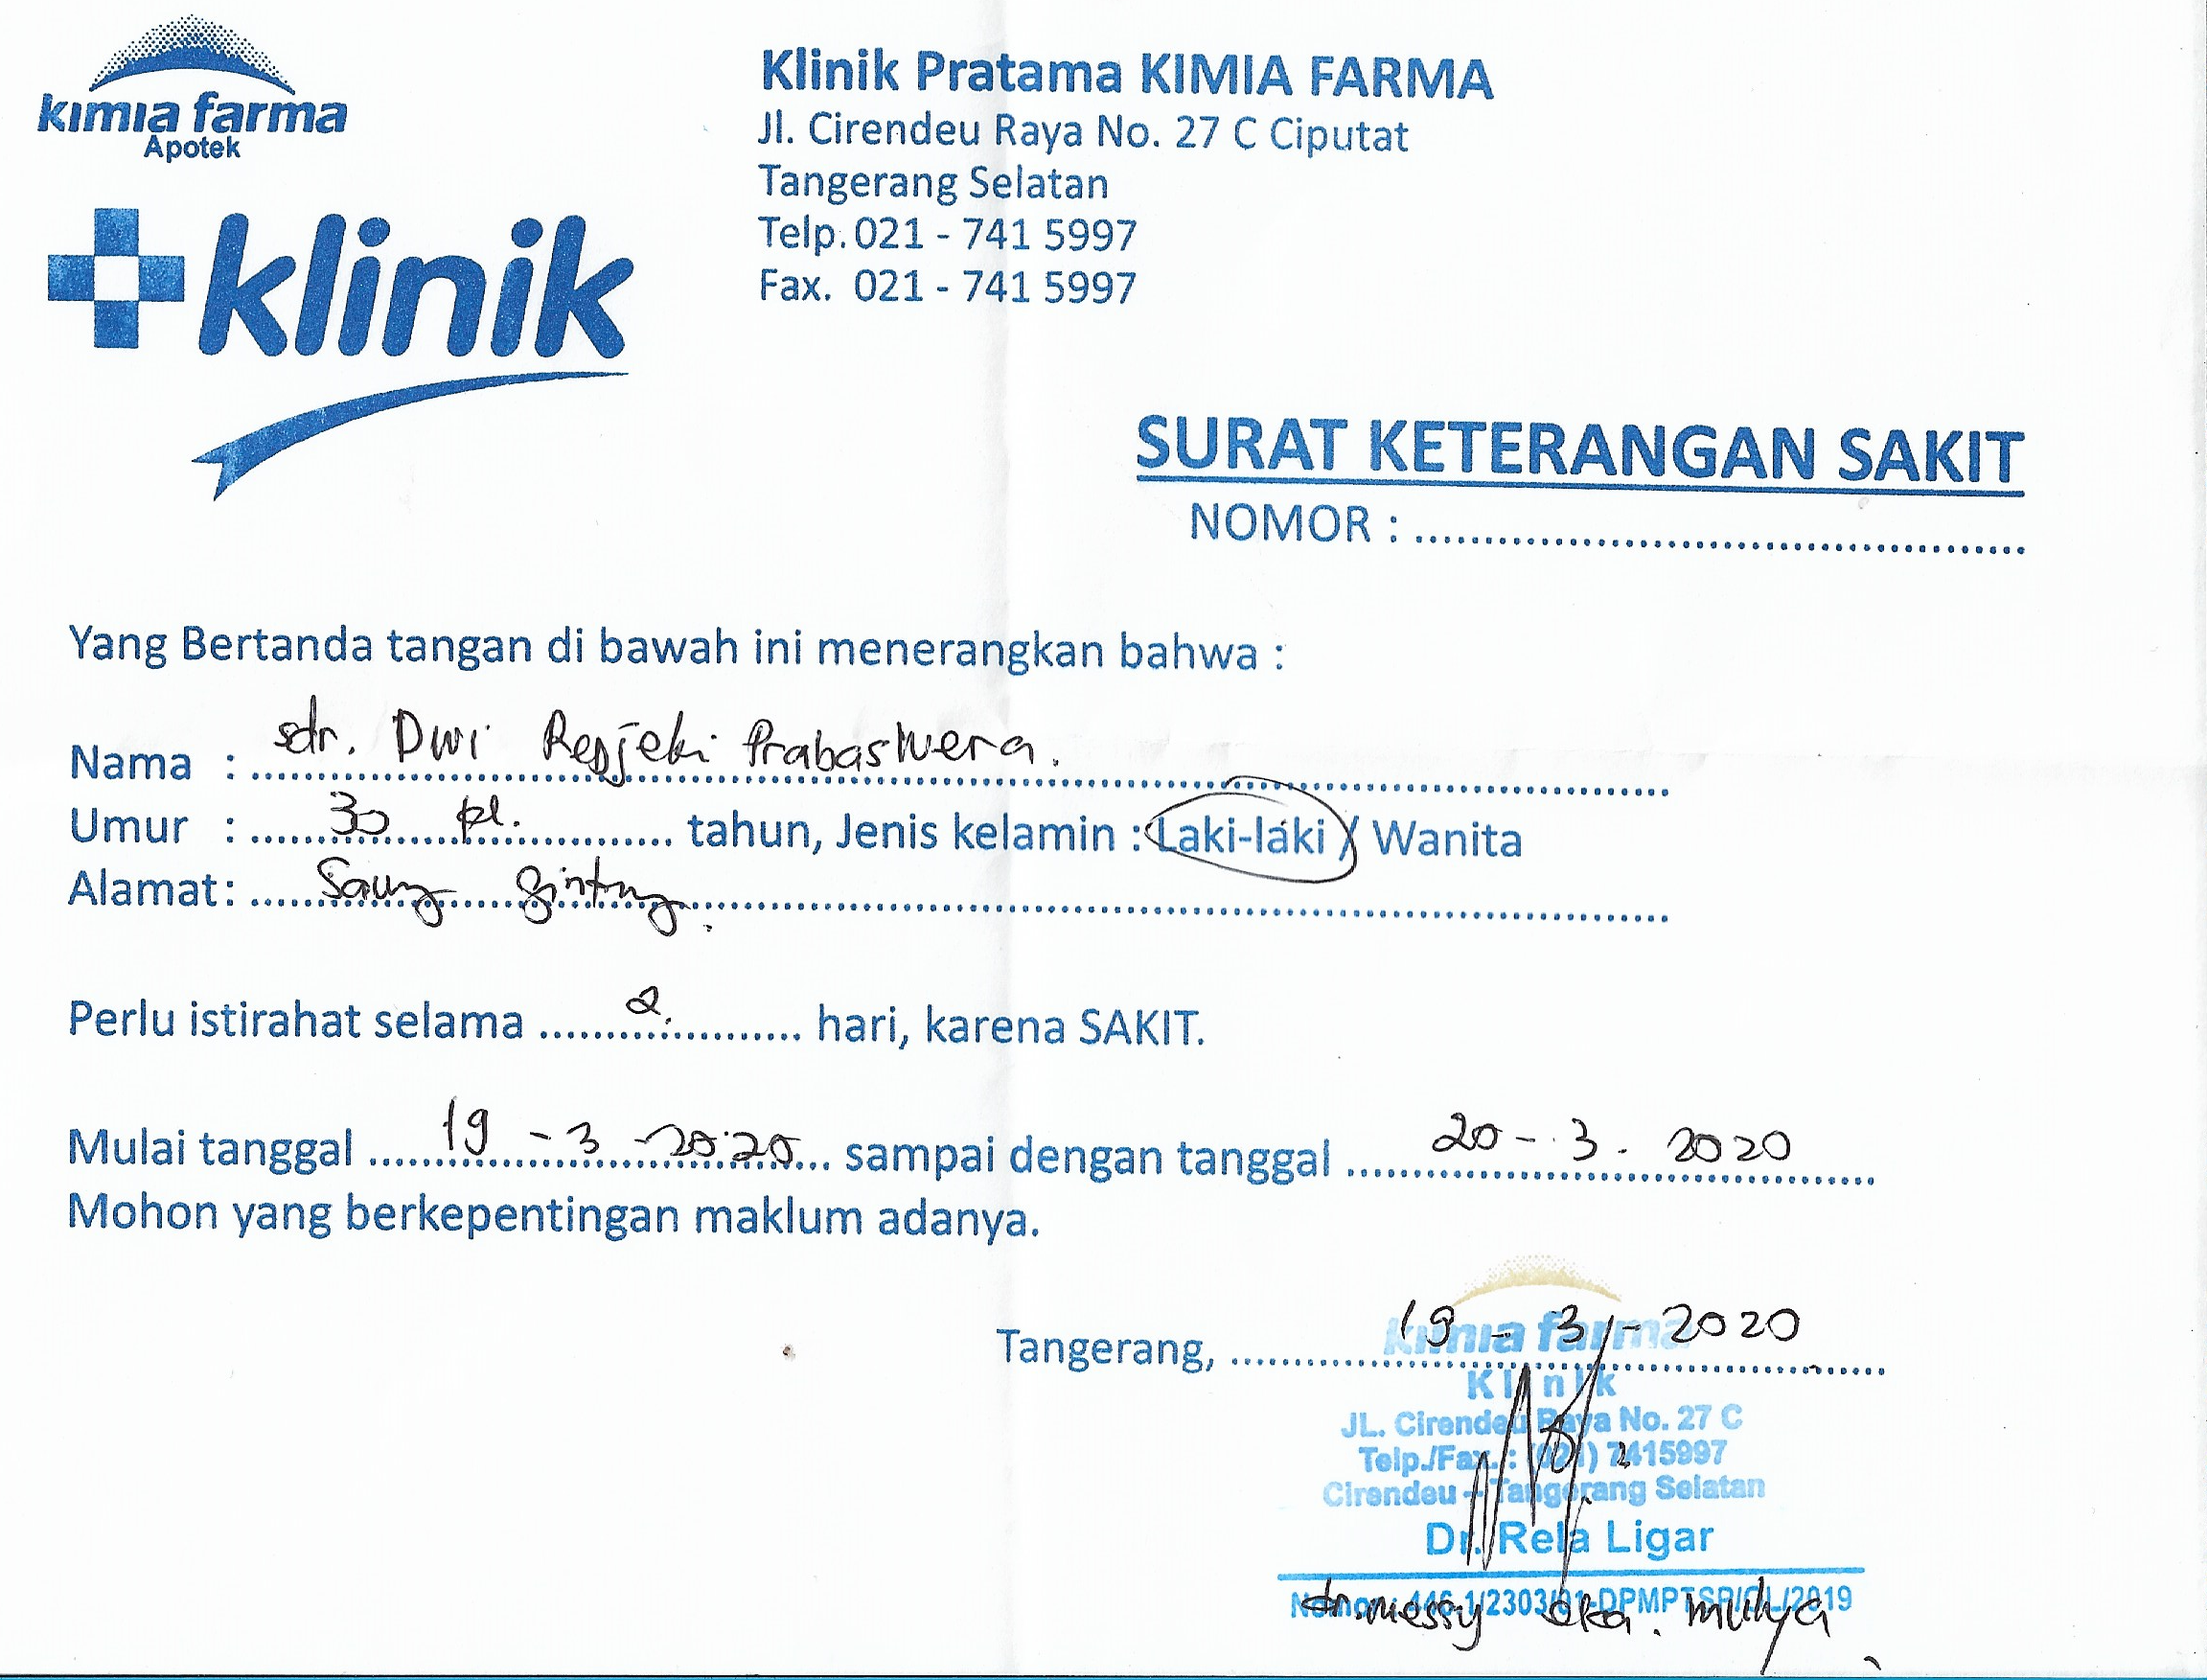 kimia farma
Apotek
klinik
Klinik Pratama KIMIA FARMA
Jl. Cirendeu Raya No. 27 C Ciputat
Tangerang Selatan
Telp. 021 - 741 5997
Fax. 021 - 741 5997
SURAT KETERANGAN SAKIT
NOMOR : ........................................
Yang Bertanda tangan di bawah ini menerangkan bahwa :
Nama : sdr. Dwi Redjeki Prabaswera.
Umur : 30 tahun, Jenis kelamin : Laki-laki / Wanita
Alamat :
Perlu istirahat selama 2. hari, karena SAKIT.
Mulai tanggal 19 - 3 - 2020 sampai dengan tanggal 20 - 3 - 2020
Mohon yang berkepentingan maklum adanya.
Tangerang, 19 - 3 - 2020
kimia farma
Klinik
JL. Cirendeu Raya No. 27 C
Telp./Fax. : (021) 7415997
Cirendeu - Tangerang Selatan
Dr. Rela Ligar
dr. messy eka. mulya